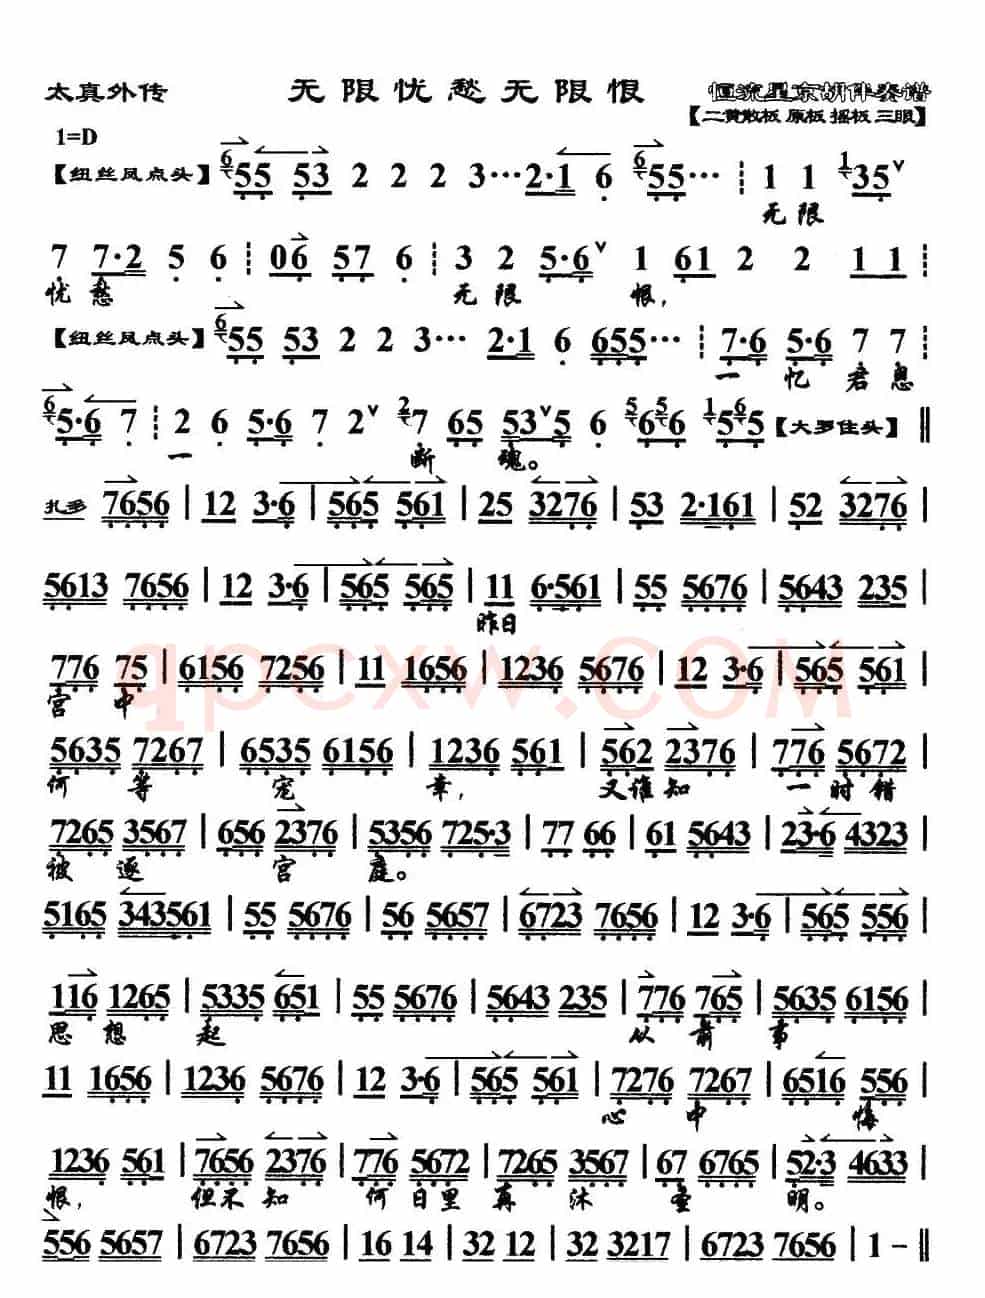 太真外传 无限忧愁无限恨 恒流星京胡伴奏谱
【二黄散板 原板 摇板 三眼】
1=D
【纽丝凤点头】 6 55 53 2 2 2 3··· 2·1 6 6 55··· ┊ 1 1 1 35ˇ
无限
7 7·2 5 6 ┊ 06 57 6 ┊ 3 2 5·6ˇ 1 61 2 2 1 1 ┊
忧愁 无限 恨，
【纽丝凤点头】 6 55 53 2 2 3··· 2·1 6 655··· ┊ 7·6 5·6 7 7 ┊
一忆君恩
6 5·6 7 ┊ 2 6 5·6 7 2ˇ 2 7 65 53ˇ5 6 5 6 5 6 1 5 6 5 【大罗住头】 ‖
一 断 魂。
扎多 7656 | 12 3·6 | 565 561 | 25 3276 | 53 2·161 | 52 3276 |
5613 7656 | 12 3·6 | 565 565 | 11 6·561 | 55 5676 | 5643 235 |
昨日
776 75 | 6156 7256 | 11 1656 | 1236 5676 | 12 3·6 | 565 561 |
宫中
qpcxw.com
5635 7267 | 6535 6156 | 1236 561 | 562 2376 | 776 5672 |
何等宠幸，又谁知一时错
7265 3567 | 656 2376 | 5356 725·3 | 77 66 | 61 5643 | 23·6 4323 |
被逐宫庭。
5165 343561 | 55 5676 | 56 5657 | 6723 7656 | 12 3·6 | 565 556 |
116 1265 | 5335 651 | 55 5676 | 5643 235 | 776 765 | 5635 6156 |
思想起 从前事
11 1656 | 1236 5676 | 12 3·6 | 565 561 | 7276 7267 | 6516 556 |
心中悔
1236 561 | 7656 2376 | 776 5672 | 7265 3567 | 67 6765 | 52·3 4633 |
恨，但不知何日里再沐圣明。
556 5657 | 6723 7656 | 16 14 | 32 12 | 32 3217 | 6723 7656 | 1 – ‖